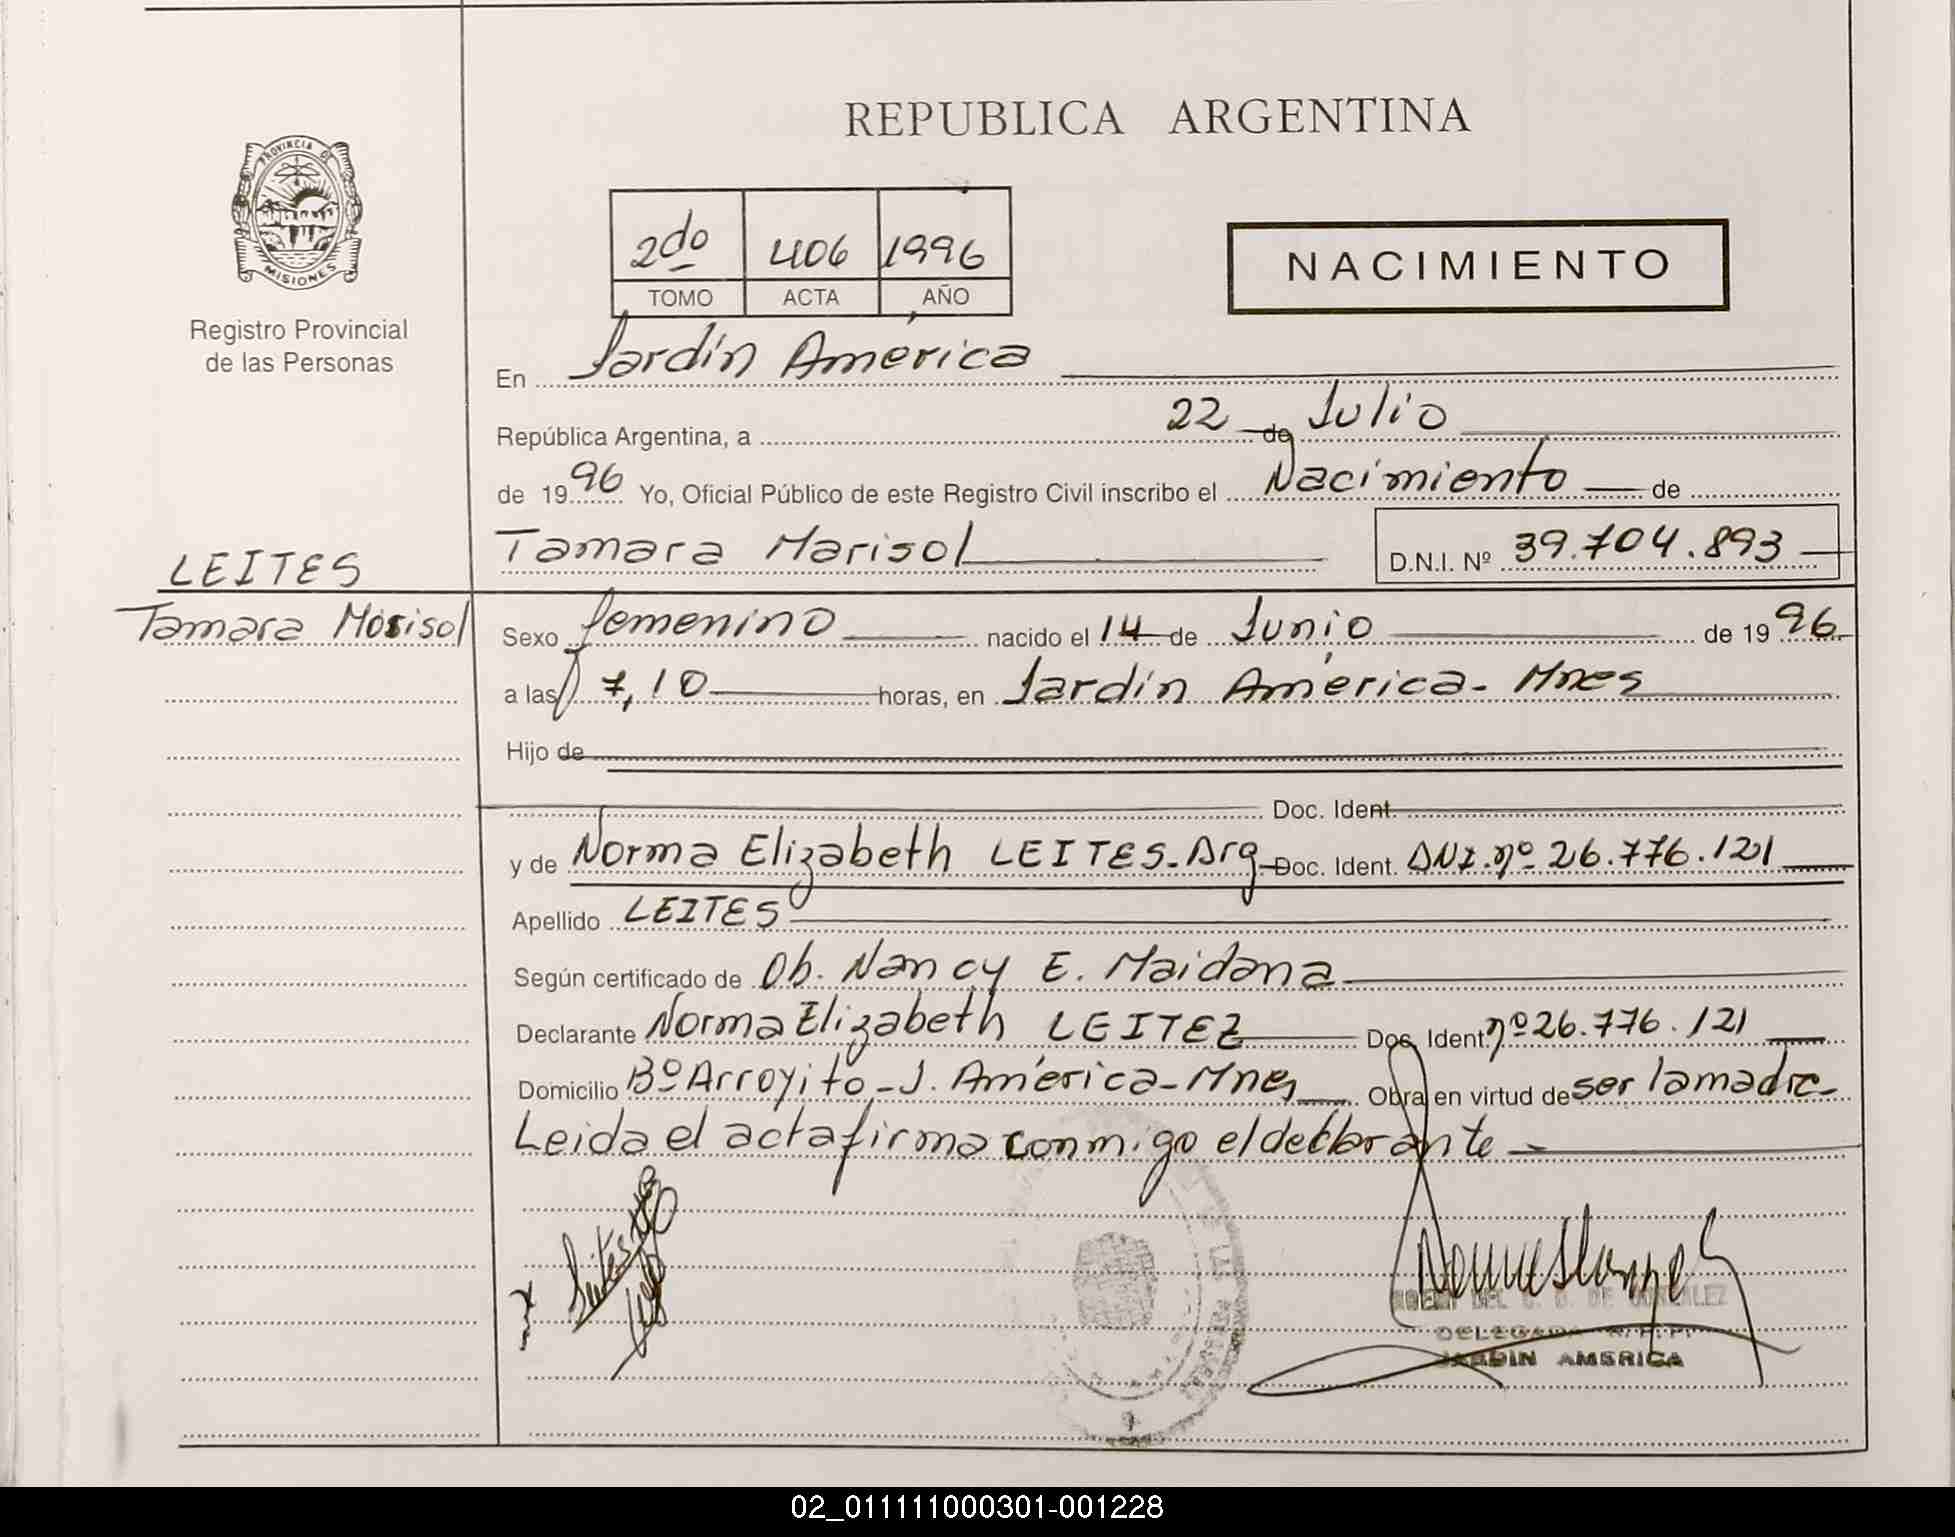 REPUBLICA ARGENTINA
PROVINCIA DE
MISIONES
Registro Provincial
de las Personas
2do 406 1996
TOMO ACTA AÑO
NACIMIENTO
En Jardín América
República Argentina, a 22 de Julio
de 1996 Yo, Oficial Público de este Registro Civil inscribo el Nacimiento de
Tamara Marisol D.N.I. Nº 39.704.893
LEITES
Tamara Marisol
Sexo femenino nacido el 14 de Junio de 1996
a las 7,10 horas, en Jardín América - Mnes
Hijo de
Doc. Ident.
y de Norma Elizabeth LEITES - Arg Doc. Ident. DNI. nº 26.776.121
Apellido LEITES
Según certificado de Ob. Nancy E. Maidana
Declarante Norma Elizabeth LEITEZ Doc. Ident. nº 26.776.121
Domicilio Bº Arroyito - J. América - Mnes Obra en virtud de ser la madre -
Leida el acta firma conmigo el declarante
DE GONZALEZ
DELEGADA R.P.P.
JARDIN AMERICA
02_011111000301-001228